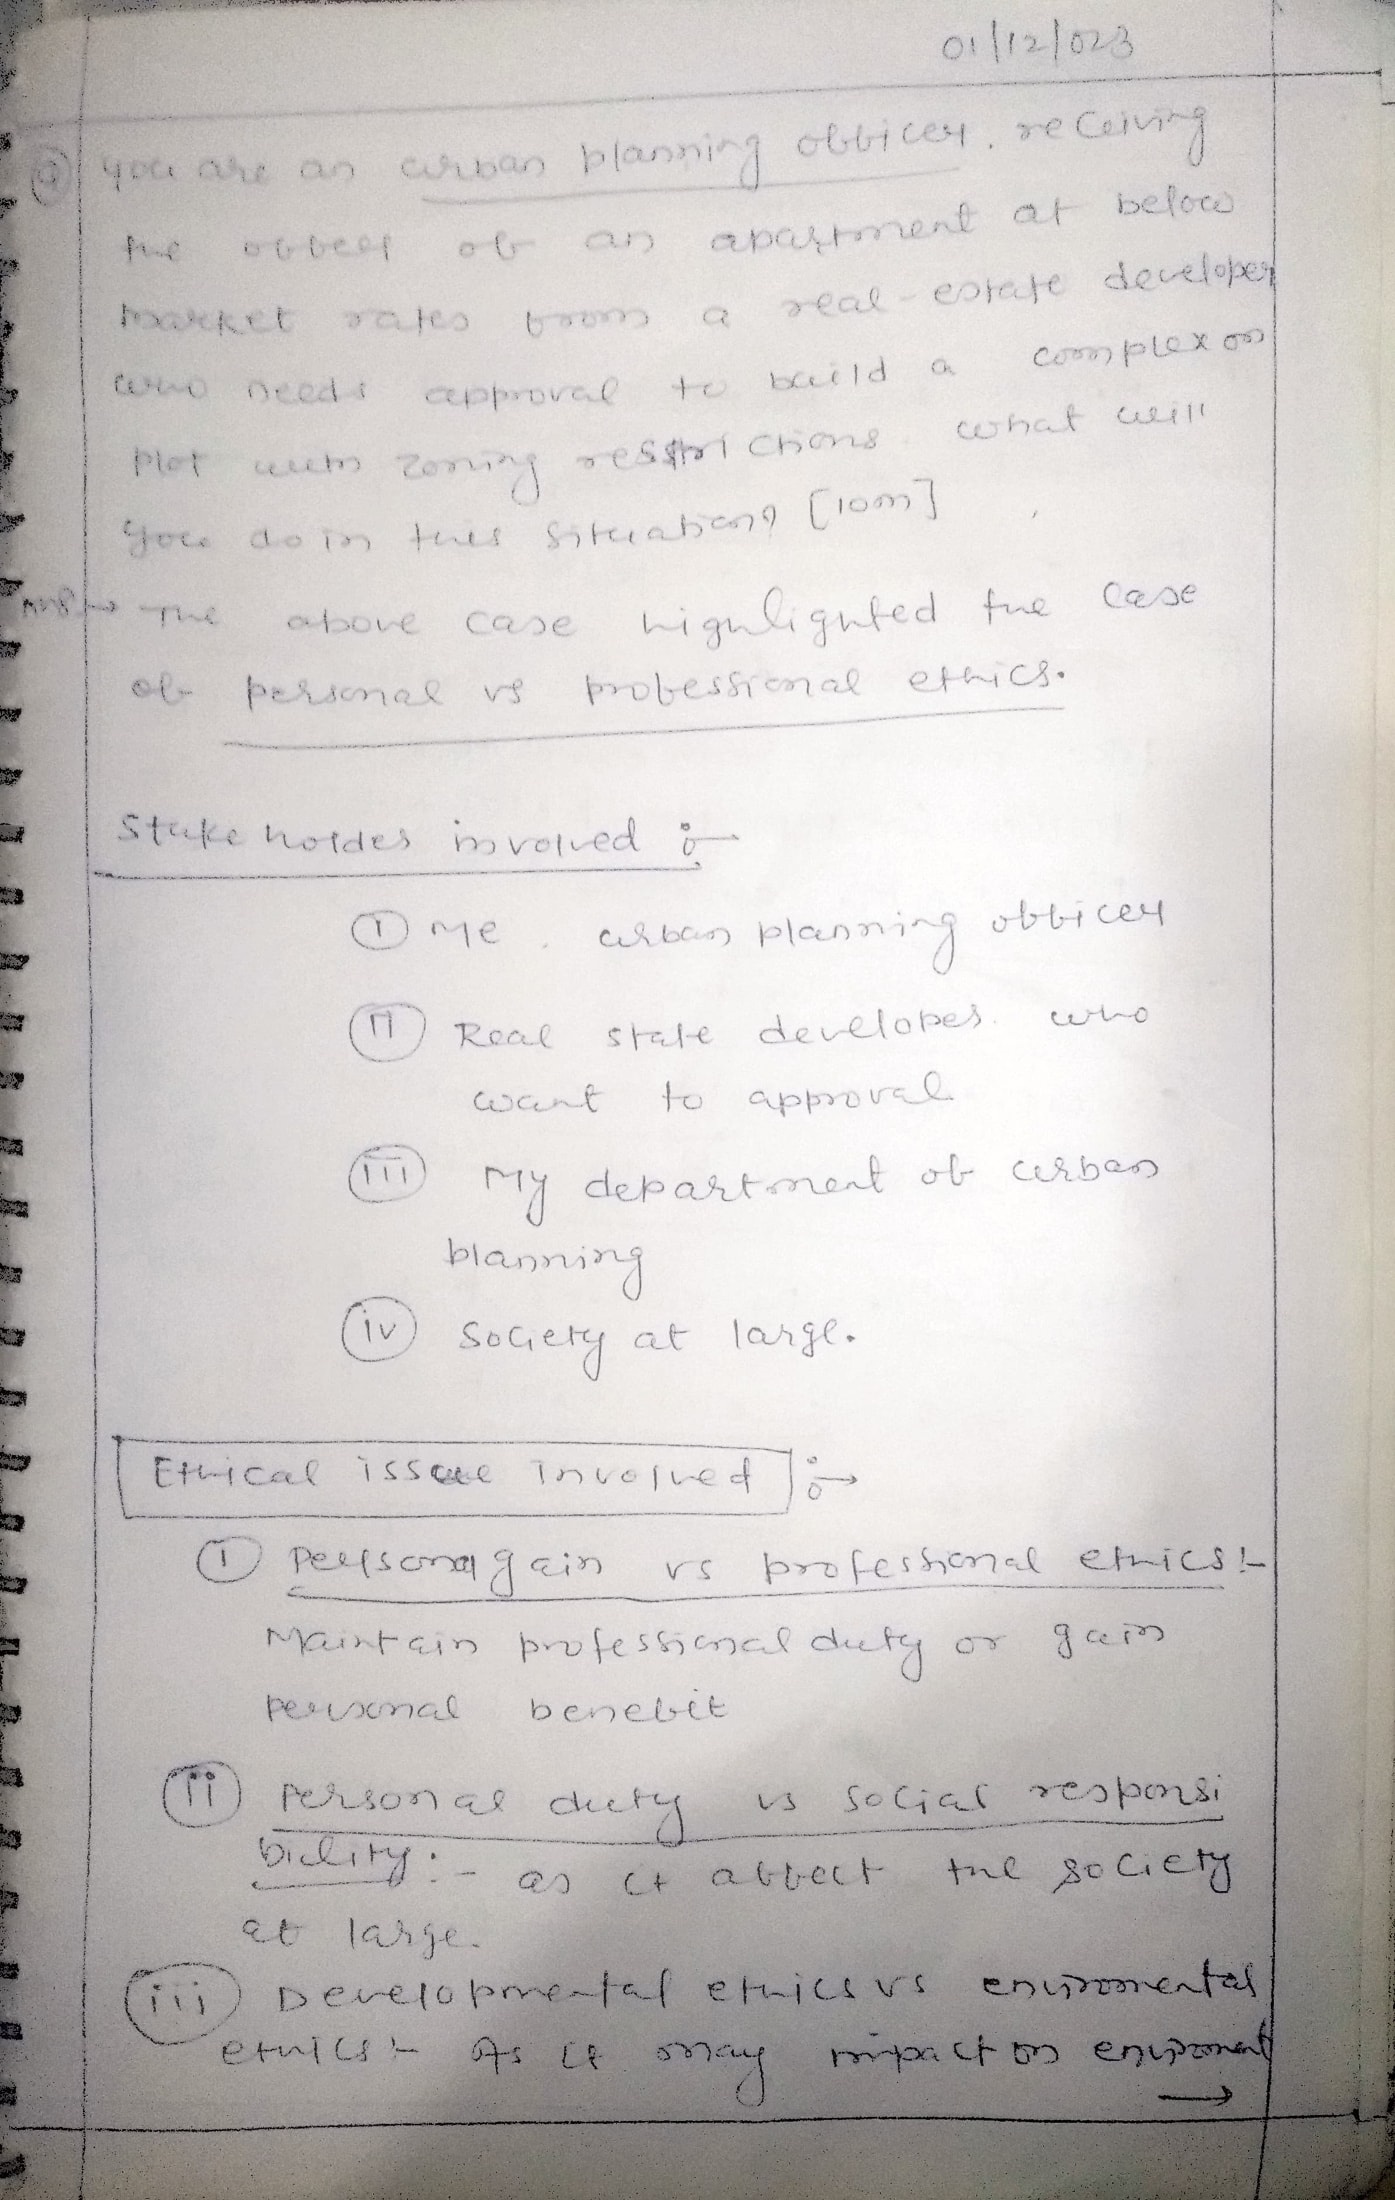 01/12/023
Q you are an urban planning officer, receiving
the offer of an apartment at below
market rates from a real-estate developer
who needs approval to build a complex on
plot with zoning restrictions what will
you do in this situation? [10m]
Ans:→ The above case highlighted the case
of personal vs professional ethics.
Stake holder involved :→
(I) Me, urban planning officer
(II) Real state developer who
want to approval
(iii) My department of urban
planning
(iv) Society at large.
Ethical issue Involved :→
(I) Personal gain vs professional ethics:-
Maintain professional duty or gain
personal benefit
(ii) Personal duty vs social responsi
bility:- as it affect the society
at large.
(iii) Developmental ethics vs enviromental
ethics:- As it may impact on enviroment
→